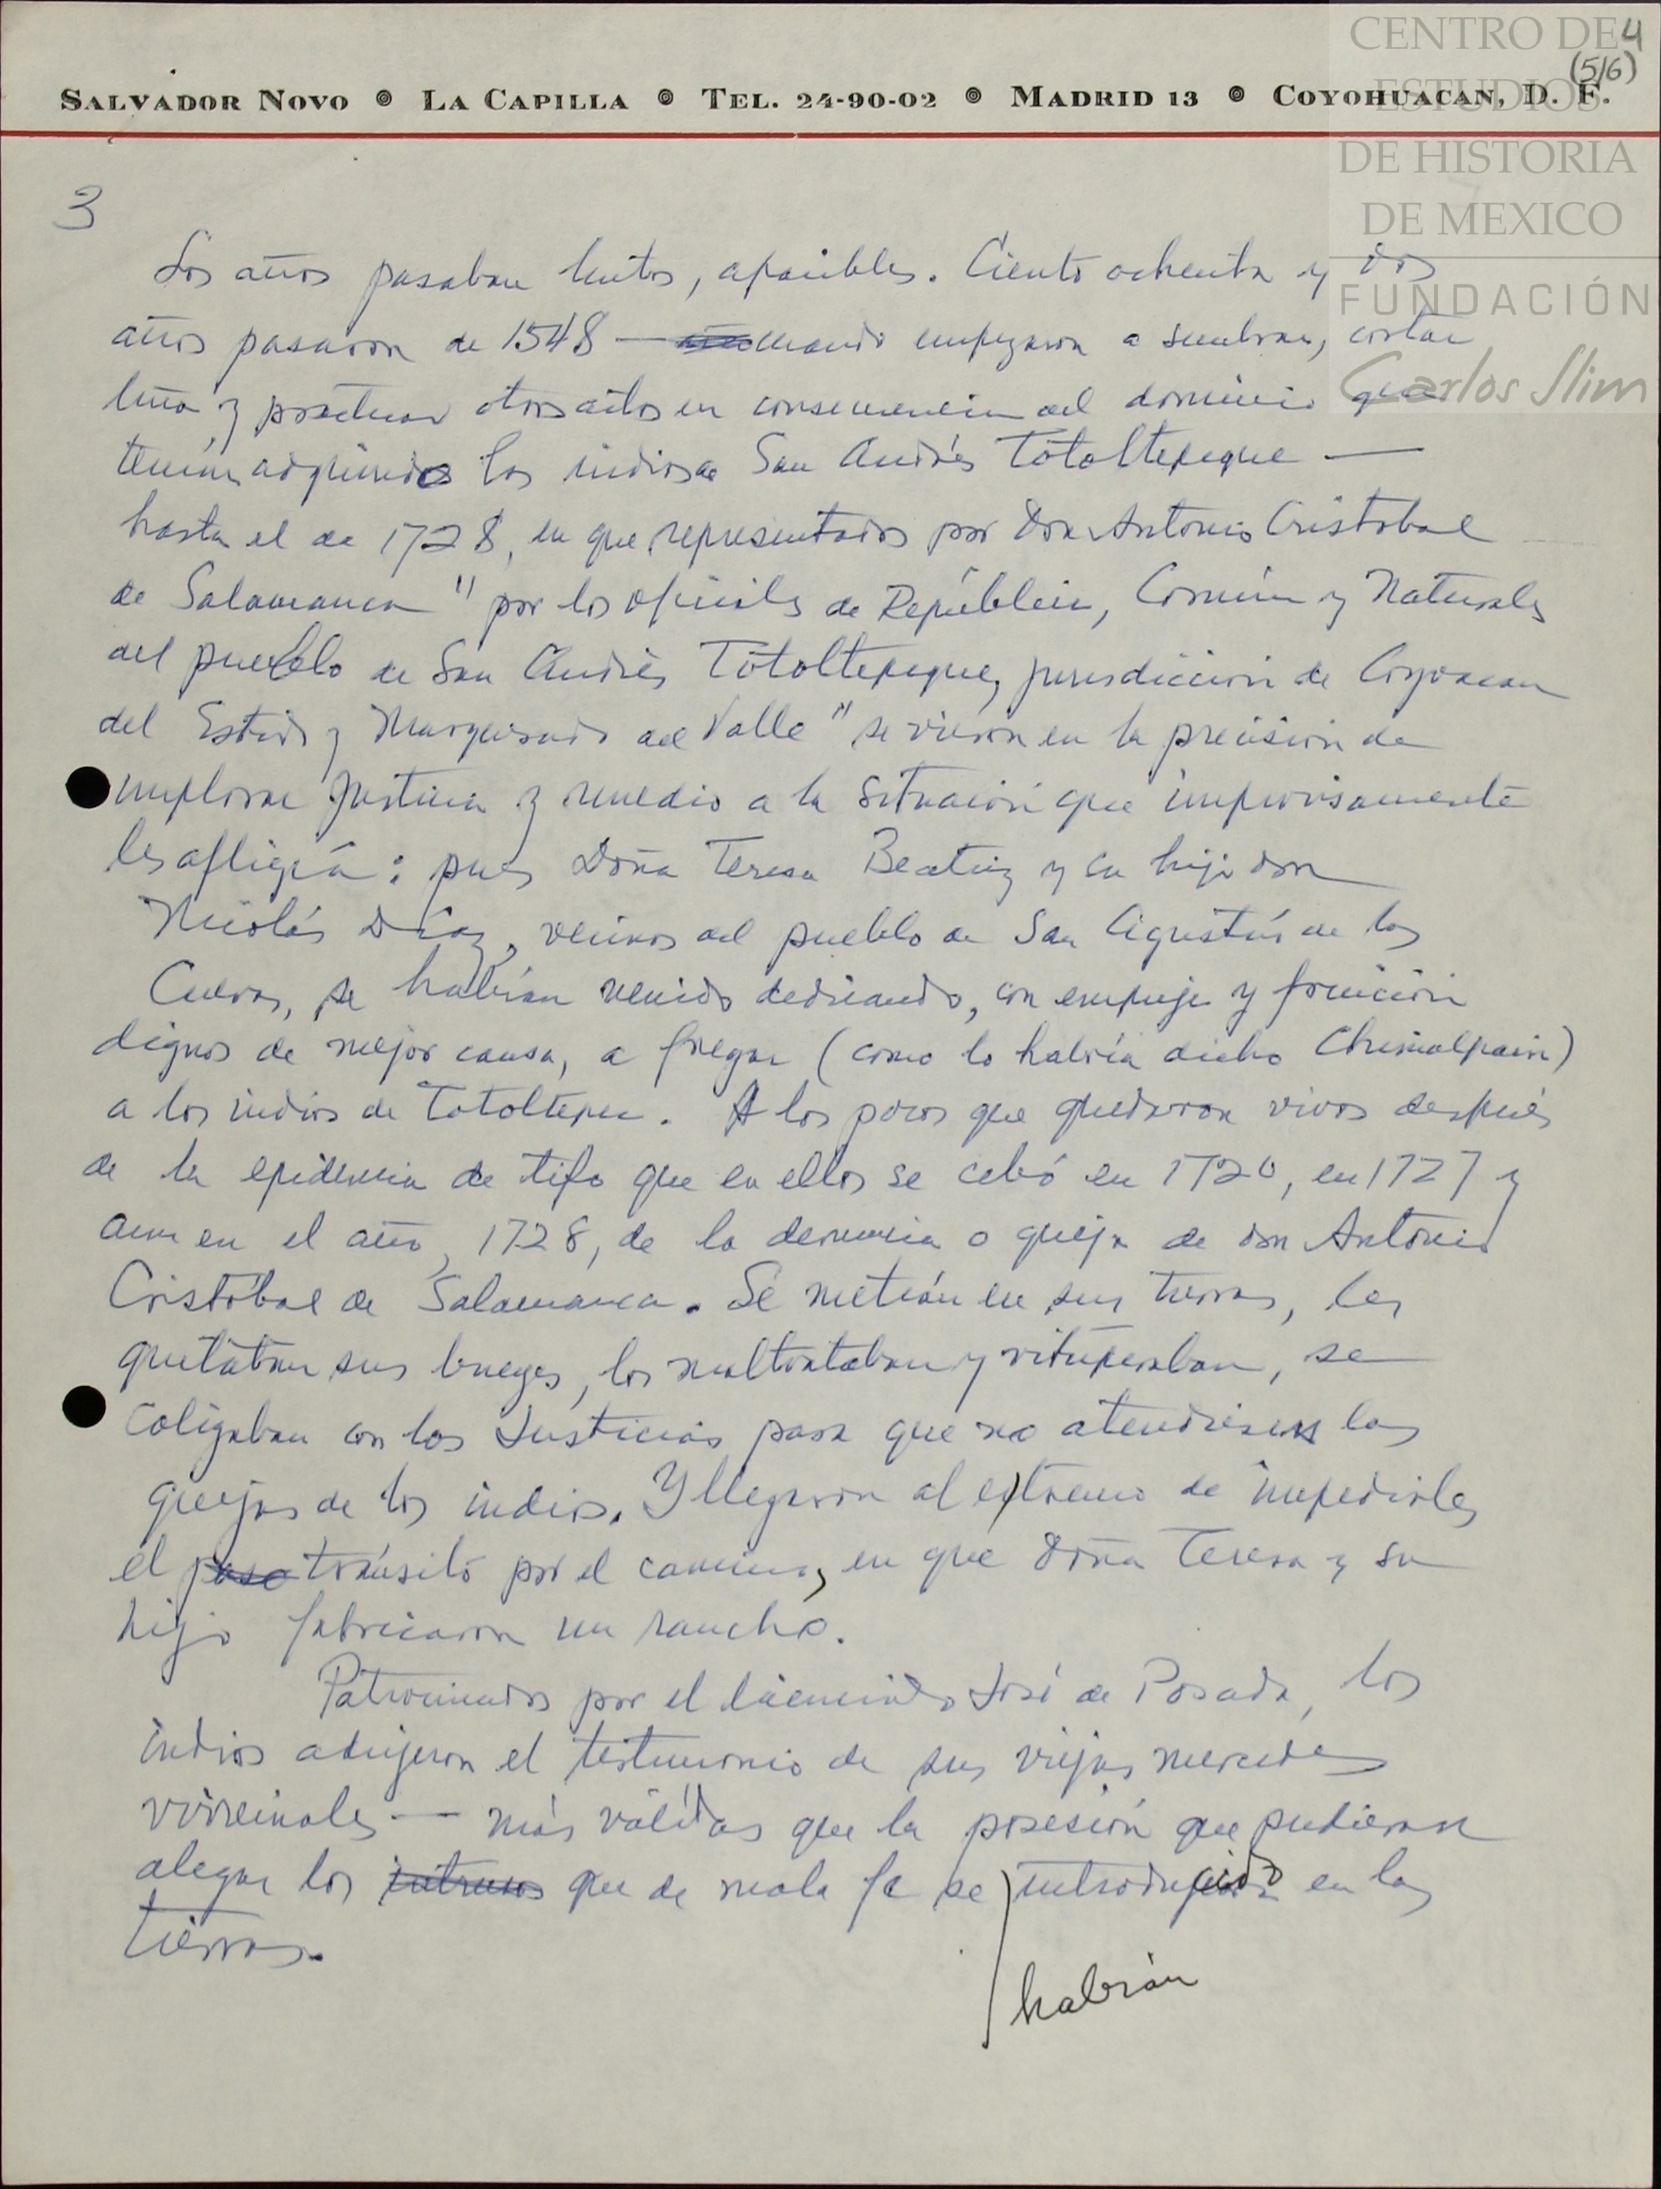 CENTRO DE
ESTUDIOS
DE HISTORIA
DE MEXICO
FUNDACIÓN
Carlos Slim
4
(5/6)
SALVADOR NOVO LA CAPILLA TEL. 24-90-02 MADRID 13 COYOHUACAN, D. F.
3
Los años pasaban lentos, apacibles. Ciento ochenta y dos
años pasaron de 1548 — cuando empezaron a sembrar, cortar
leña y practicar otros actos en consecuencia del dominio que
tenían adquirido los indios de San Andrés Totoltepeque —
hasta el de 1728, en que representados por Don Antonio Cristobal
de Salamanca "por los oficiales de República, Común y Naturales
del pueblo de San Andrés Totoltepeque, jurisdicción de Coyoacan
del Estado y Marquesado del Valle" se vieron en la precisión de
implorar justicia y remedio a la situación que improvisamente
les afligía: pues Doña Teresa Beatriz y su hijo don
Nicolás Díaz, vecinos del pueblo de San Agustín de las
Cuevas, se habían venido dedicando, con empuje y fruición
dignos de mejor causa, a fregar (como lo habría dicho Chimalpain)
a los indios de Totoltepec. A los pocos que quedaron vivos después
de la epidemia de tifo que en ellos se cebó en 1720, en 1727 y
aun en el año, 1728, de la denuncia o queja de don Antonio
Cristóbal de Salamanca. Se metían en sus tierras, les
quitaban sus bueyes, los maltrataban y vituperaban, se
coligaban con los Justicias para que no atendiesen las
quejas de los indios. Y llegaron al extremo de impedirles
el paso tránsito por el camino, en que doña Teresa y su
hijo fabricaron un rancho.
Patrocinados por el licenciado José de Posada, los
indios adujeron el testimonio de sus viejas mercedes
virreinales — más válidas que la posesión que pudieran
alegar los intrusos que de mala fe se introducido en las
tierras.
habían